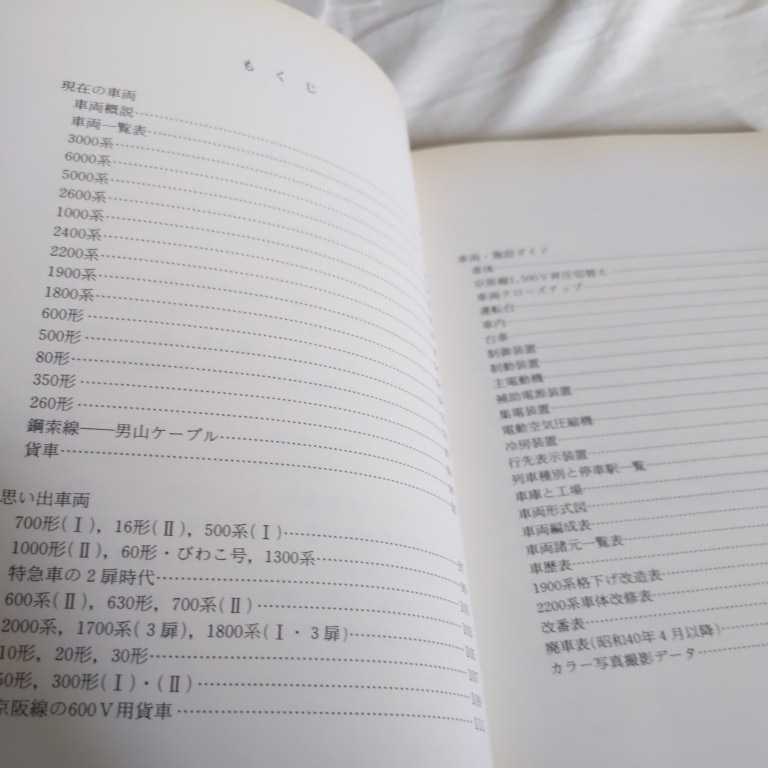 もくじ
現在の車両
車両概説
車両一覧表
3000系
6000系
5000系
2600系
1000系
2400系
2200系
1900系
1800系
600形
500形
80形
350形
260形
鋼索線──男山ケーブル
貨車
思い出車両
700形(Ⅰ), 16形(Ⅱ), 500系(Ⅰ)
1000形(Ⅱ), 60形・びわこ号, 1300系
特急車の2扉時代
600系(Ⅱ), 630形, 700系(Ⅱ)
2000系, 1700系(3扉), 1800系(Ⅰ・3扉)
10形, 20形, 30形
50形, 300形(Ⅰ)・(Ⅱ)
京阪線の600V用貨車 111
車両・施設ガイド
車体
京阪線1,500V昇圧切替え
車両クローズアップ
運転台
車内
台車
制御装置
制動装置
主電動機
補助電源装置
集電装置
電動空気圧縮機
冷房装置
行先表示装置
列車種別と停車駅一覧
車庫と工場
車両形式図
車両編成表
車両諸元一覧表
車歴表
1900系格下げ改造表
2200系車体改修表
改番表
廃車表(昭和40年4月以降)
カラー写真撮影データ